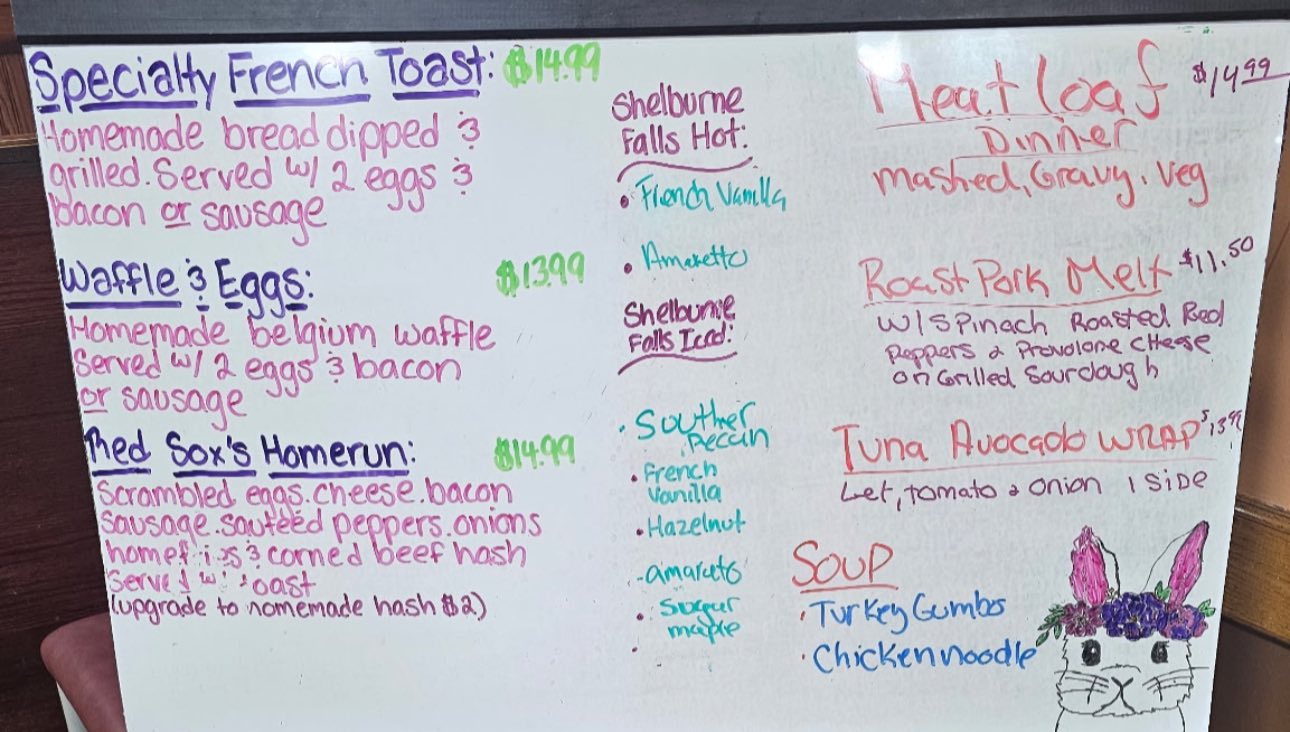 Specialty French Toast: $14.99
Homemade bread dipped &
grilled. Served w/ 2 eggs &
bacon or sausage
Waffle & Eggs: $13.99
Homemade belgium waffle
Served w/ 2 eggs & bacon
or sausage
Red Sox's Homerun: $14.99
Scrambled eggs.cheese.bacon
sausage.sauteed peppers.onions
homefries & corned beef hash
Served w/ toast
(upgrade to homemade hash $2)
Shelburne
Falls Hot:
• French Vanilla
• Amaretto
Shelburne
Falls Iced:
• Souther
Pecan
• French
Vanilla
• Hazelnut
- amareto
• Sugar
maple
•
Meatloaf $14.99
Dinner
mashed, Gravy, Veg
Roast Pork Melt $11.50
w/ Spinach Roasted Red
Peppers & Provolone Cheese
on Grilled Sourdough
Tuna Avocado WRAP $13.99
Let, tomato & onion 1 side
Soup
• Turkey Gumbo
• Chicken noodle